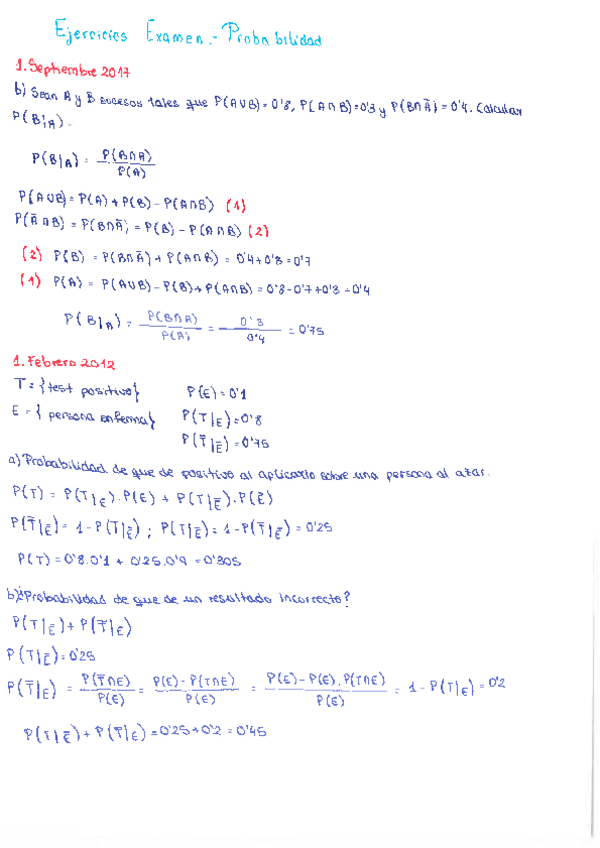 Ejercicios Examen.- Probabilidad
1. Septiembre 2017
b) Sean A y B sucesos tales que P(A∪B)=0'8, P(A∩B)=0'3 y P(B∩Ā)=0'4. Calcular
P(B|A).
P(B|A) = P(B∩A) / P(A)
P(A∪B)=P(A)+P(B)-P(A∩B) (1)
P(Ā∩B)=P(B∩Ā)=P(B)-P(A∩B) (2)
(2) P(B) = P(B∩Ā)+P(A∩B) = 0'4+0'3=0'7
(1) P(A) = P(A∪B)-P(B)+P(A∩B)=0'8-0'7+0'3=0'4
P(B|A) = P(B∩A) / P(A) = 0'3 / 0'4 = 0'75
1. Febrero 2012
T = {test positivo} P(E)=0'1
E = { persona enferma} P(T|E)=0'8
P(T̄|Ē)=0'75
a) Probabilidad de que de positivo al aplicarlo sobre una persona al azar.
P(T) = P(T|E).P(E) + P(T|Ē).P(Ē)
P(T̄|Ē)= 1-P(T|Ē) ; P(T|Ē)=1-P(T̄|Ē)=0'25
P(T)=0'8.0'1 + 0'25.0'9=0'305
b) ¿Probabilidad de que de un resultado incorrecto?
P(T|Ē)+P(T̄|E)
P(T|Ē)=0'25
P(T̄|E) = P(T̄∩E) / P(E) = P(E)-P(T∩E) / P(E) = P(E)-P(E).P(T∩E) / P(E) = 1-P(T|E)=0'2
P(T|Ē)+P(T̄|E)=0'25+0'2=0'45